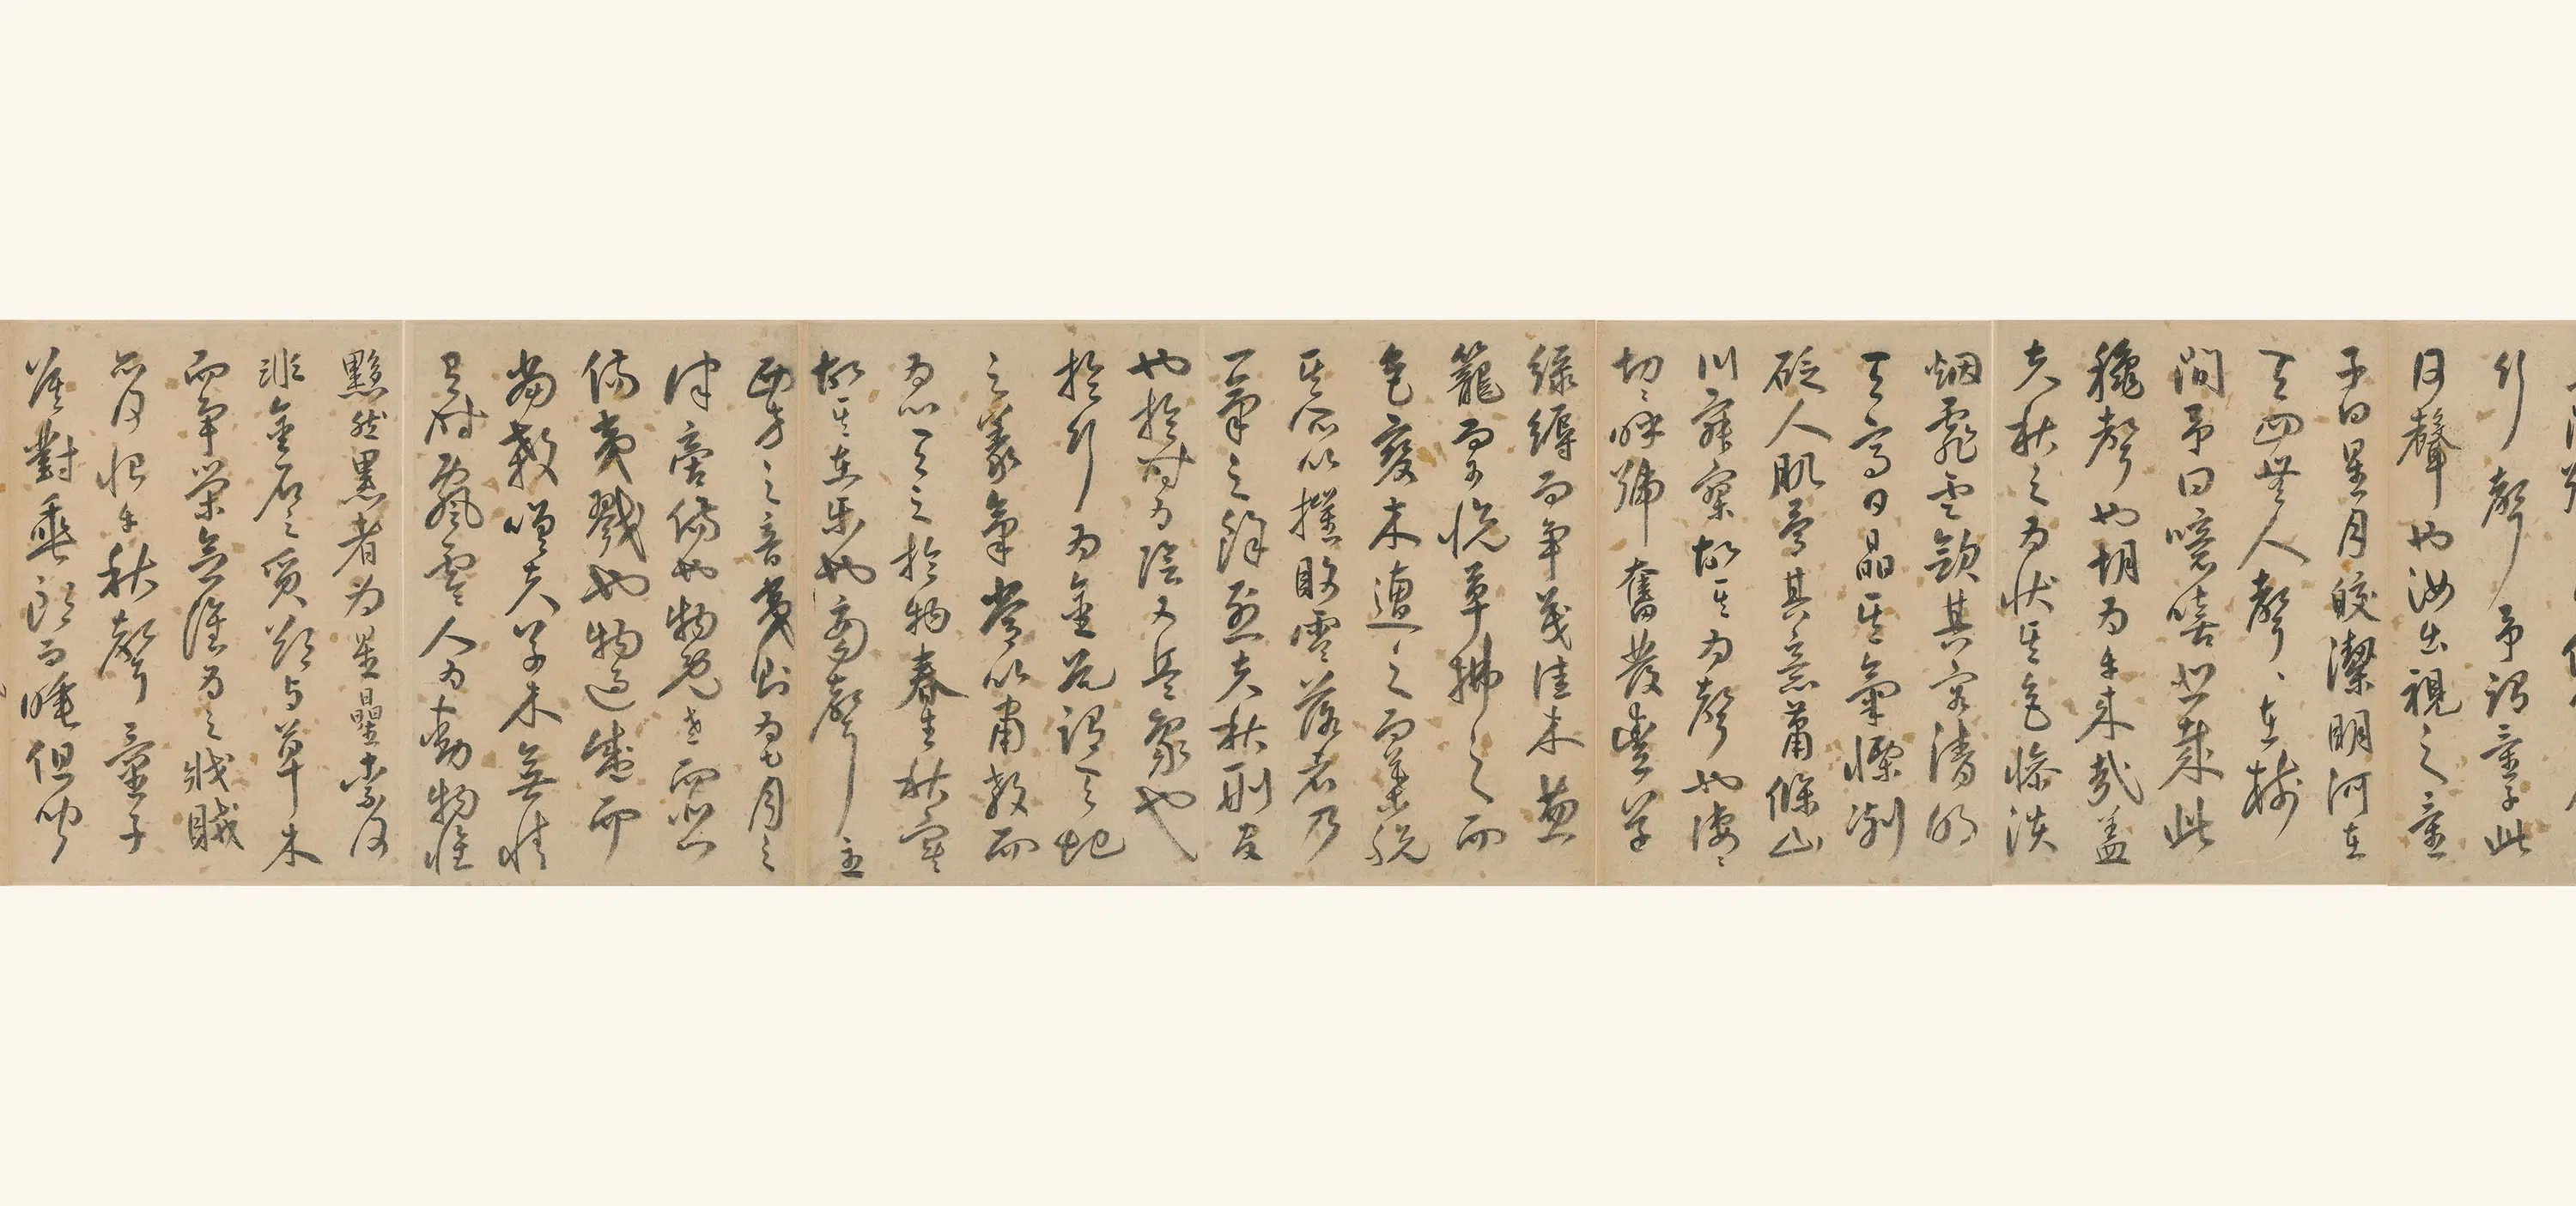 行聲予謂童子此
何聲也汝出視之童
子曰星月皎潔明河在
天四無人聲〻在樹
間予曰噫嘻悲哉此
秋聲也胡為乎來哉盖
夫秋之為狀其色慘淡
烟霏雲斂其容清明
天高日晶其氣慄冽
砭人肌骨其意蕭條山
川寂寥故其為聲也淒〻
切〻呼號奮發豐草
綠縟而爭茂佳木蔥
籠而可悅草拂之而
色變木遭之而葉脫
其所以摧敗零落者乃
一氣之餘烈夫秋刑官
也於時為陰又兵象也
於行為金是謂天地
之義氣常以肅殺而
為心天之於物春生秋實
故其在樂也商聲主
西方之音夷則為七月之
律商傷也物既老而悲
傷夷戮也物過盛而
當殺嗟夫草木無情
有時飄零人為動物惟
黟然黑者為星星奈何
非金石之質欲與草木
而爭榮念誰為之戕賊
亦何恨乎秋聲童子
莫對垂頭而睡但聞